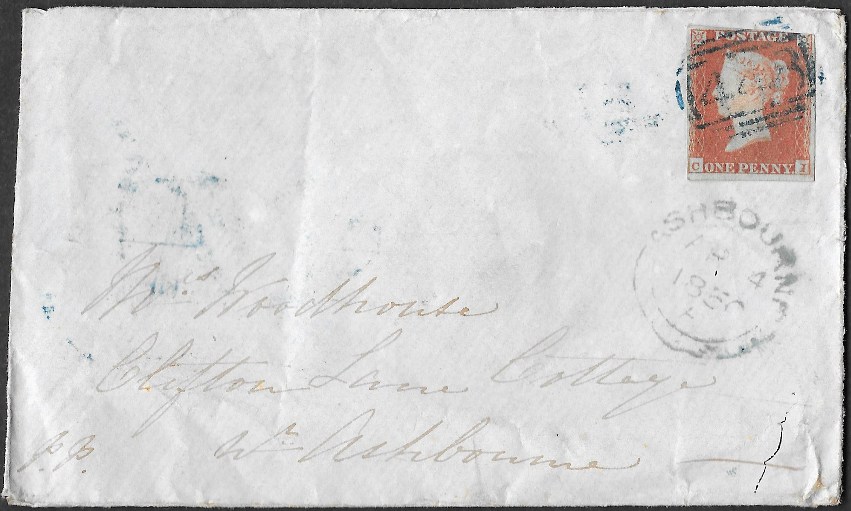 POSTAGE
ONE PENNY
C
I
ASHBOURNE
4
1850
Mrs. Woodhouse
Clifton Lane Cottage
Nr Ashbourne
p.p.